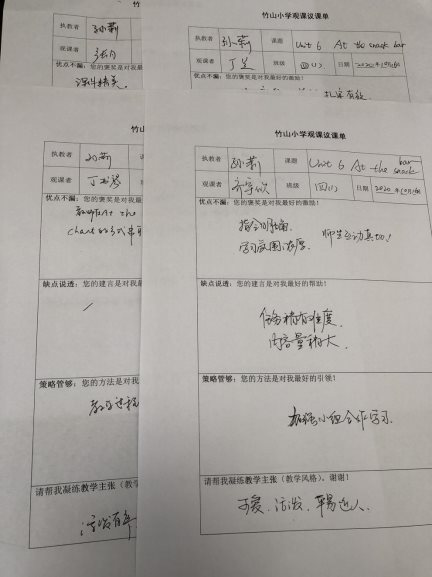 竹山小学观课议课单
执教者 孙莉
观课者
优点不漏：您的褒奖是对我最
课件精美。
竹山小学观课议课单
执教者 孙莉 课题 Unit 6 At the snack bar
观课者 丁兰 班级 四(1) 日期
优点不漏：您的褒奖是对我最好的激励！
竹山
执教者 孙莉
观课者
优点不漏：您的褒奖是对我最
教师以At the
chant的形式
缺点说透：您的建言是对我最
策略管够：您的方法是对我
教学过程
请帮我凝练教学主张（教学
活泼有
竹山小学观课议课单
执教者 孙莉 课题 Unit 6 At the snack bar
观课者 班级 四(1) 日期
优点不漏：您的褒奖是对我最好的激励！
指令明确, 师生互动真切!
学习氛围浓厚
缺点说透：您的建言是对我最好的帮助！
任务稍有难度,
内容量稍大
策略管够：您的方法是对我最好的引领！
加强小组合作学习.
请帮我凝练教学主张（教学风格）。谢谢！
可爱、活泼、平易近人.